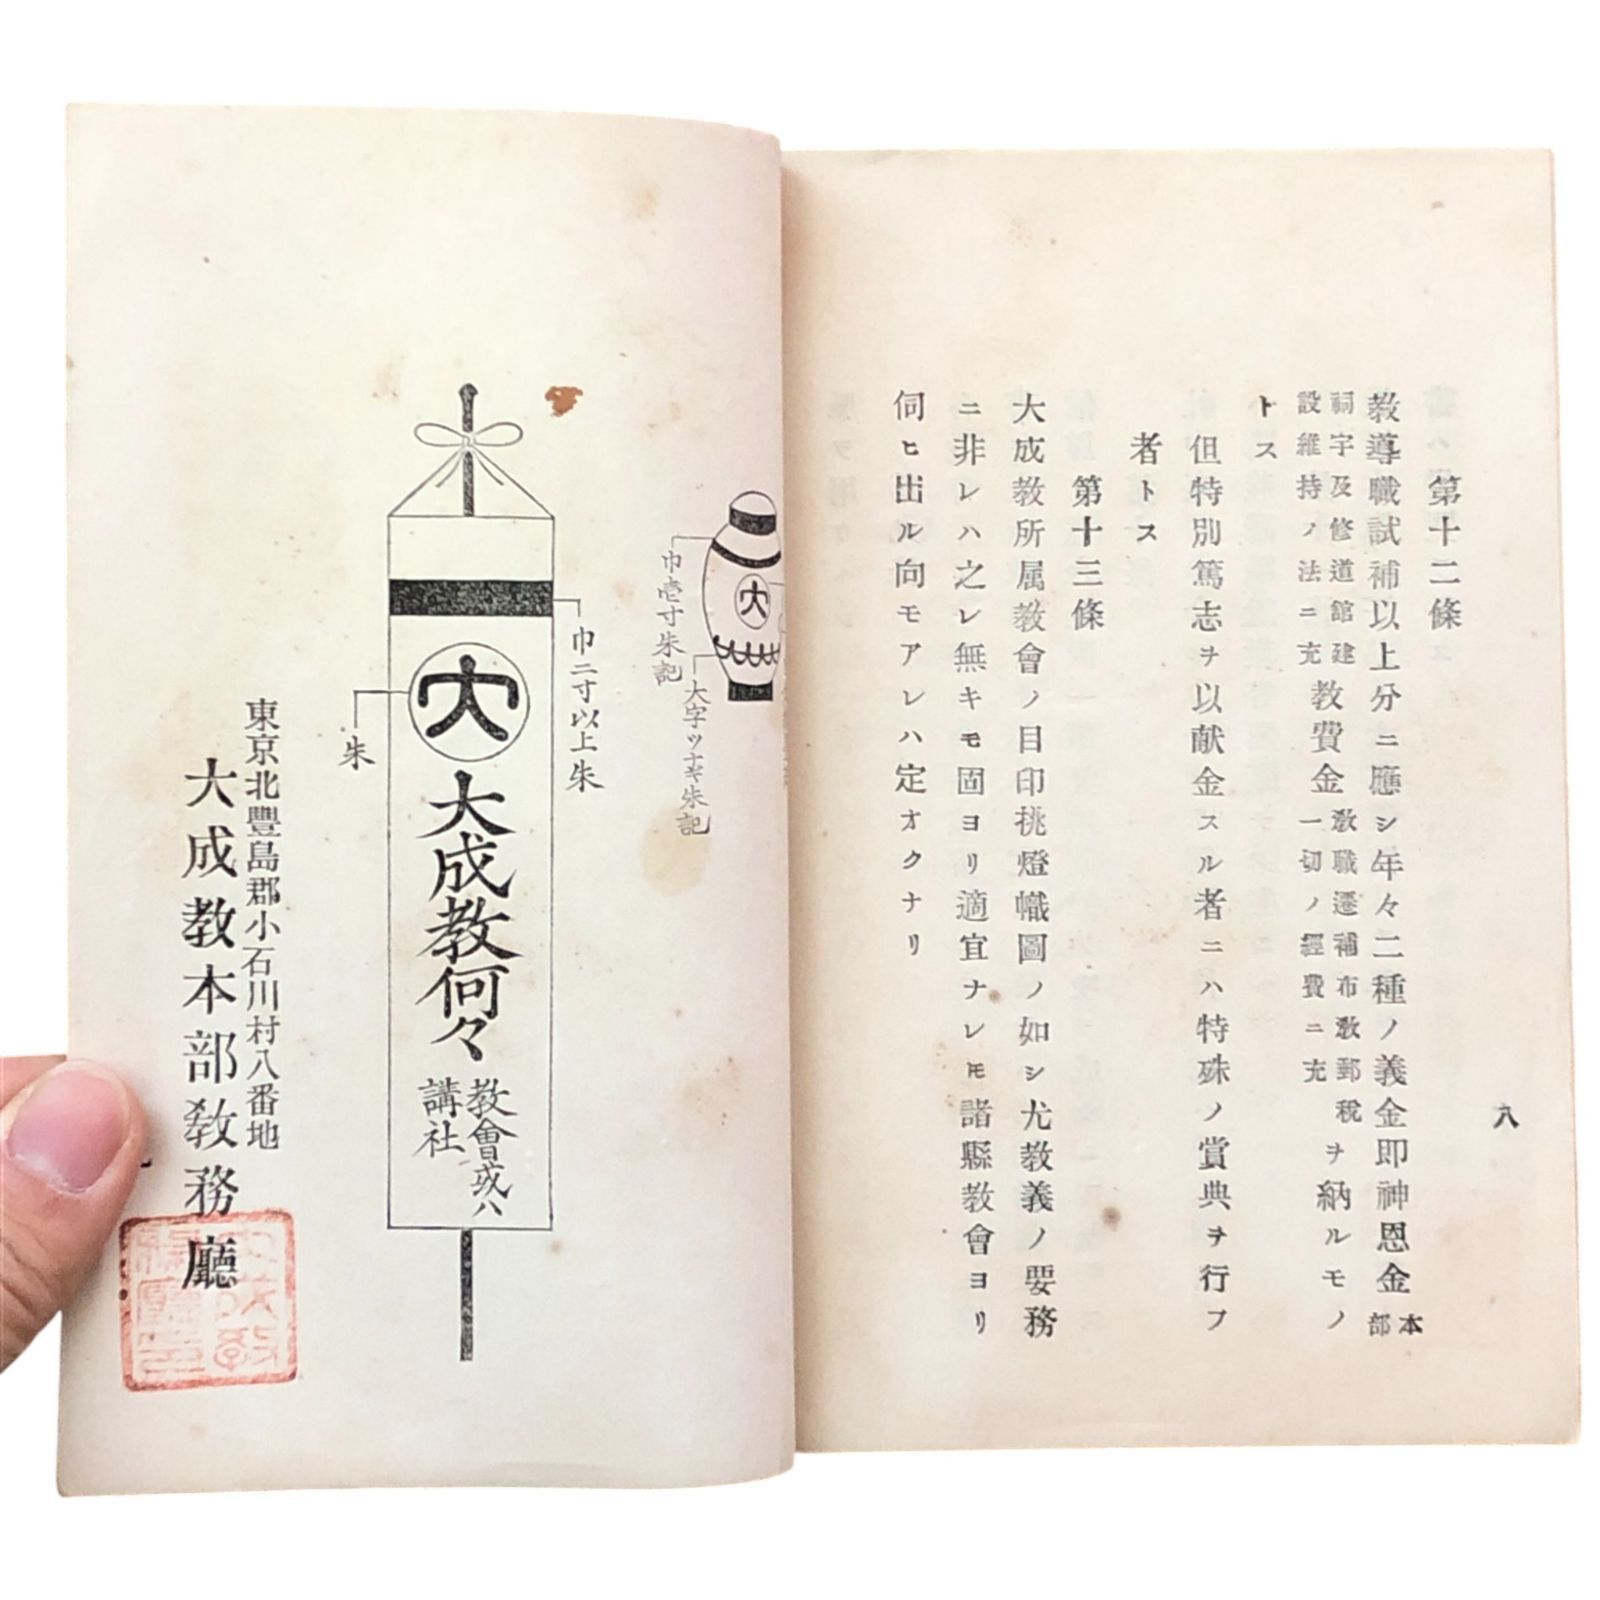 八
第十二條
教導職試補以上分ニ應シ年々二種ノ義金即神恩金本部
祠宇及修道館建設維持ノ法ニ充教費金教職遷補布教郵税一切ノ經費ニ充ヲ納ルモノ
トス
但特別篤志ヲ以献金スル者ニハ特殊ノ賞典ヲ行フ
者トス
第十三條
大成教所属教會ノ目印挑燈幟圖ノ如シ尤教義ノ要務
ニ非レハ之レ無キモ固ヨリ適宜ナレ𪜈諸縣教會ヨリ
伺ヒ出ル向モアレハ定オクナリ
大
巾壱寸朱記
大字ツナキ朱記
巾二寸以上朱
大
朱
大成教何々
教會或ハ
講社
東京北豐島郡小石川村八番地
大成教本部教務廳